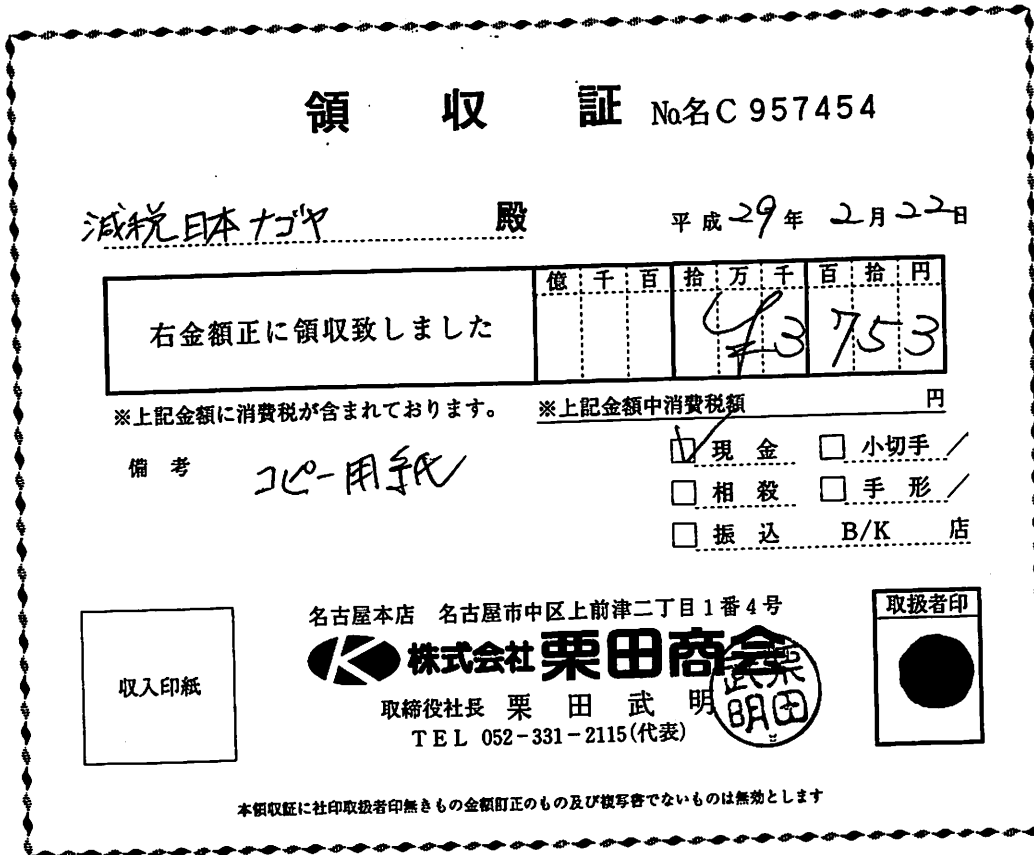 領収証 No.名C 957454
減税日本ナゴヤ 殿
平成29年2月22日
億 千 百 拾 万 千 百 拾 円
右金額正に領収致しました
¥3 753
※上記金額に消費税が含まれております。
※上記金額中消費税額 円
備考 コピー用紙
現金 小切手
相殺 手形
振込 B/K 店
名古屋本店 名古屋市中区上前津二丁目1番4号
K 株式会社 栗田商会
取締役社長 栗田武明
栗田武明
TEL 052-331-2115(代表)
収入印紙
取扱者印
本領収証に社印取扱者印無きもの金額訂正のもの及び複写書でないものは無効とします